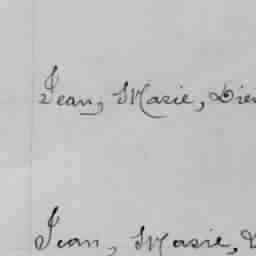 Jean, Marie,
Jean, Marie,